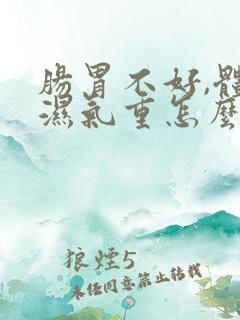 腸胃不好,體
濕氣重怎麼
狼煙5
未经同意禁止转载